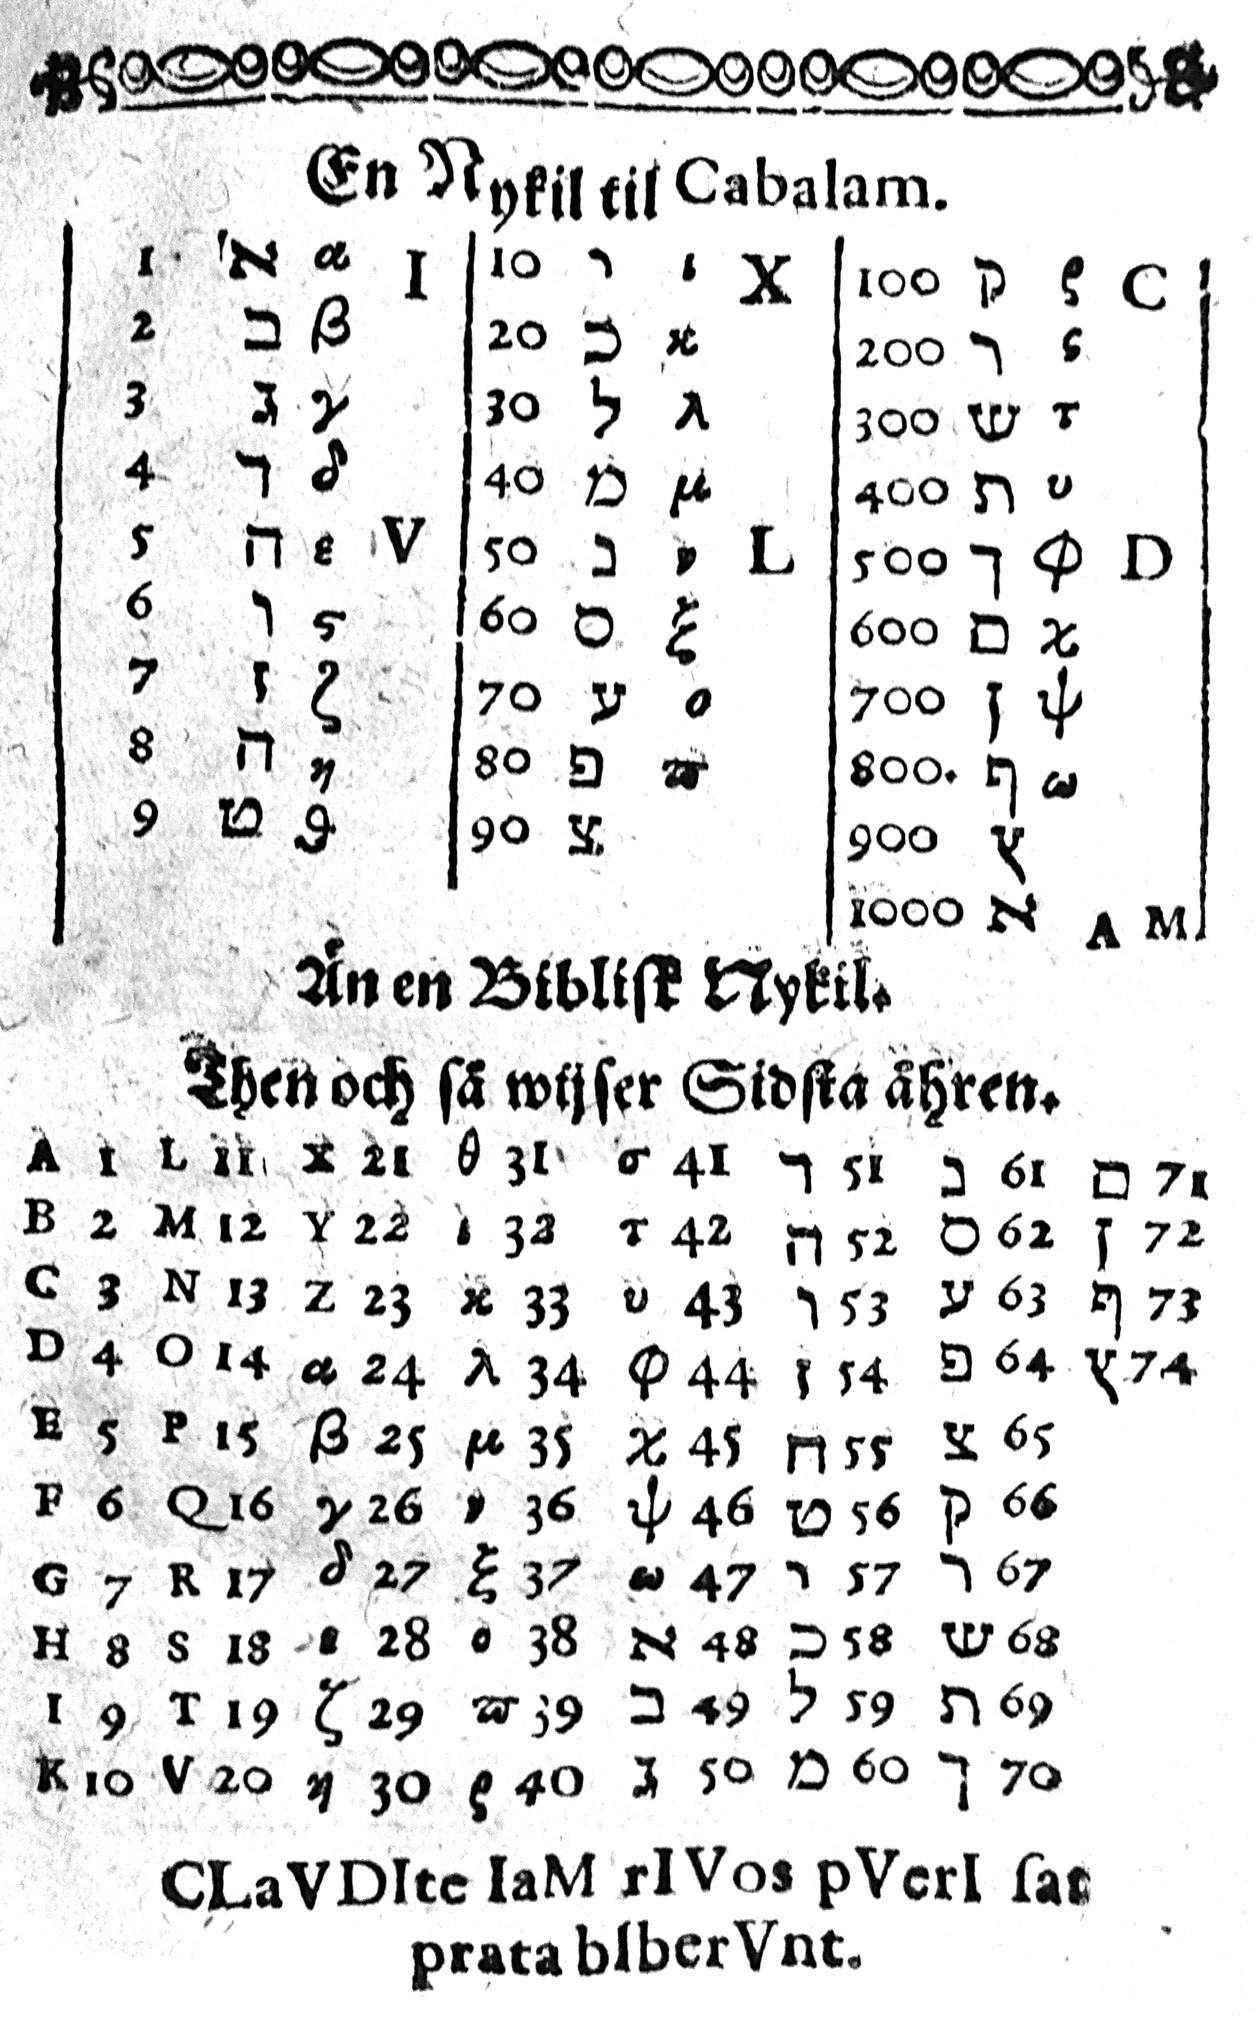 En Nykil til Cabalam.
1 א α I 10 י ι X 100 ק ρ C
2 ב β 20 כ ϰ 200 ר ς
3 ג γ 30 ל λ 300 ש τ
4 ד δ 40 מ μ 400 ת υ
5 ה ε V 50 נ ν L 500 ך φ D
6 ו ς 60 ס ξ 600 ם χ
7 ז ζ 70 ע ο 700 ן ψ
8 ה η 80 פ ϖ 800. ף ω
9 ט ϑ 90 צ 900 ץ
1000 א A M
Än en Bibliſk Nykil.
Then och så wijſer Sidſta åhren.
A 1 L 11 X 21 θ 31 σ 41 ד 51 נ 61 ם 71
B 2 M 12 Y 22 ι 32 τ 42 ה 52 ס 62 ן 72
C 3 N 13 Z 23 ϰ 33 υ 43 ו 53 ע 63 ף 73
D 4 O 14 α 24 λ 34 φ 44 ז 54 פ 64 ץ 74
E 5 P 15 β 25 μ 35 χ 45 ח 55 צ 65
F 6 Q 16 γ 26 ν 36 ψ 46 ט 56 ק 66
G 7 R 17 δ 27 ξ 37 ω 47 י 57 ר 67
H 8 S 18 ε 28 ο 38 א 48 כ 58 ש 68
I 9 T 19 ζ 29 ϖ 39 ב 49 ל 59 ת 69
K 10 V 20 η 30 ρ 40 ג 50 מ 60 ך 70
CLaVDIte IaM rIVos pVerI ſat
prata bIberVnt.